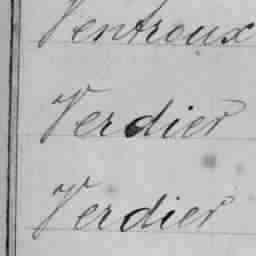 Ventroux
Verdier
Verdier